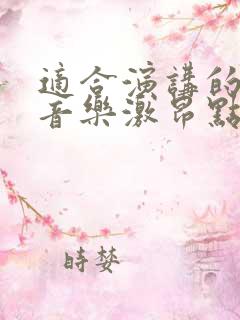 適合演講的
音樂激昂點
時婪